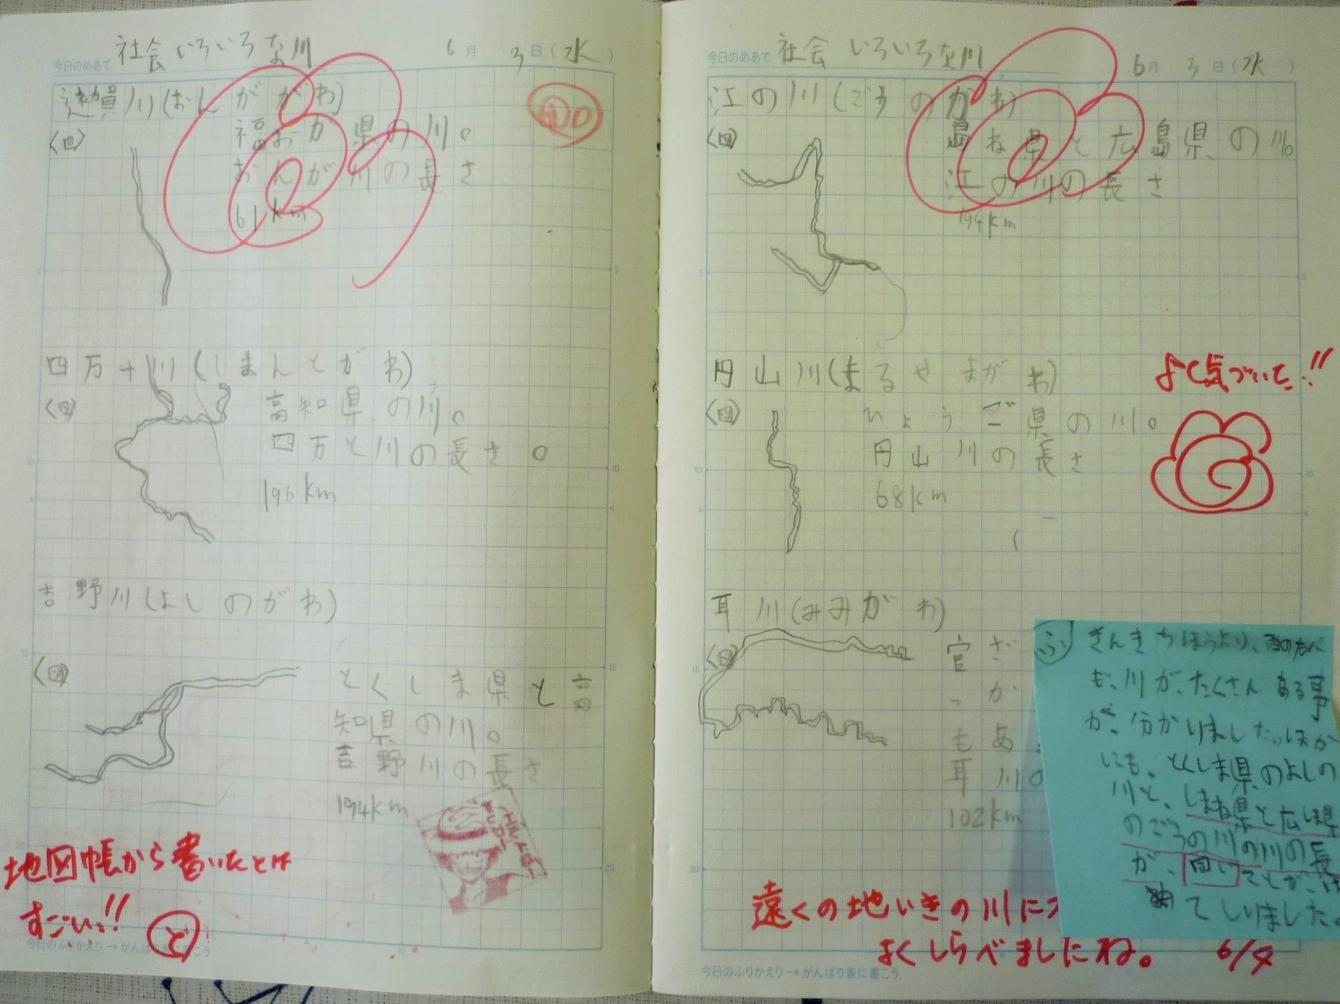 今日のめあて 社会 いろいろな川 6月 3日(水)
遠賀川(おんががわ)
〈図〉
福おか県の川。
おんが川の長さ
61km
100
四万十川(しまんとがわ)
〈図〉
高知県の川。
四万と川の長さ。
196km
吉野川(よしのがわ)
〈図〉
とくしま県と高
知県の川。
吉野川の長さ
194km
地図帳から書いたとは
すごいっ!!
ど
今日のふりかえり→がんばり表に書こう
今日のめあて 社会 いろいろな川 6月 3日(水)
江の川(ごうのがわ)
〈図〉
島ね県と広島県の川。
江の川の長さ
194km
円山川(まるやまがわ)
〈図〉
ひょうご県の川。
円山川の長さ
68km
よく気づいた!!
耳川(みみがわ)
〈図〉
宮ざ
っか
もあ
耳川の
102km
ふ きんきちほうより、西の方に
も、川が、たくさんある事
が、分かりました。ほか
にも、とくしま県のよしの
川と、しまね県と広しま県
のごうの川の川の長
が、同じてことが、は
てしりました。
遠くの地いきの川に
よくしらべましたね。
6/4
今日のふりかえり→がんばり表に書こう